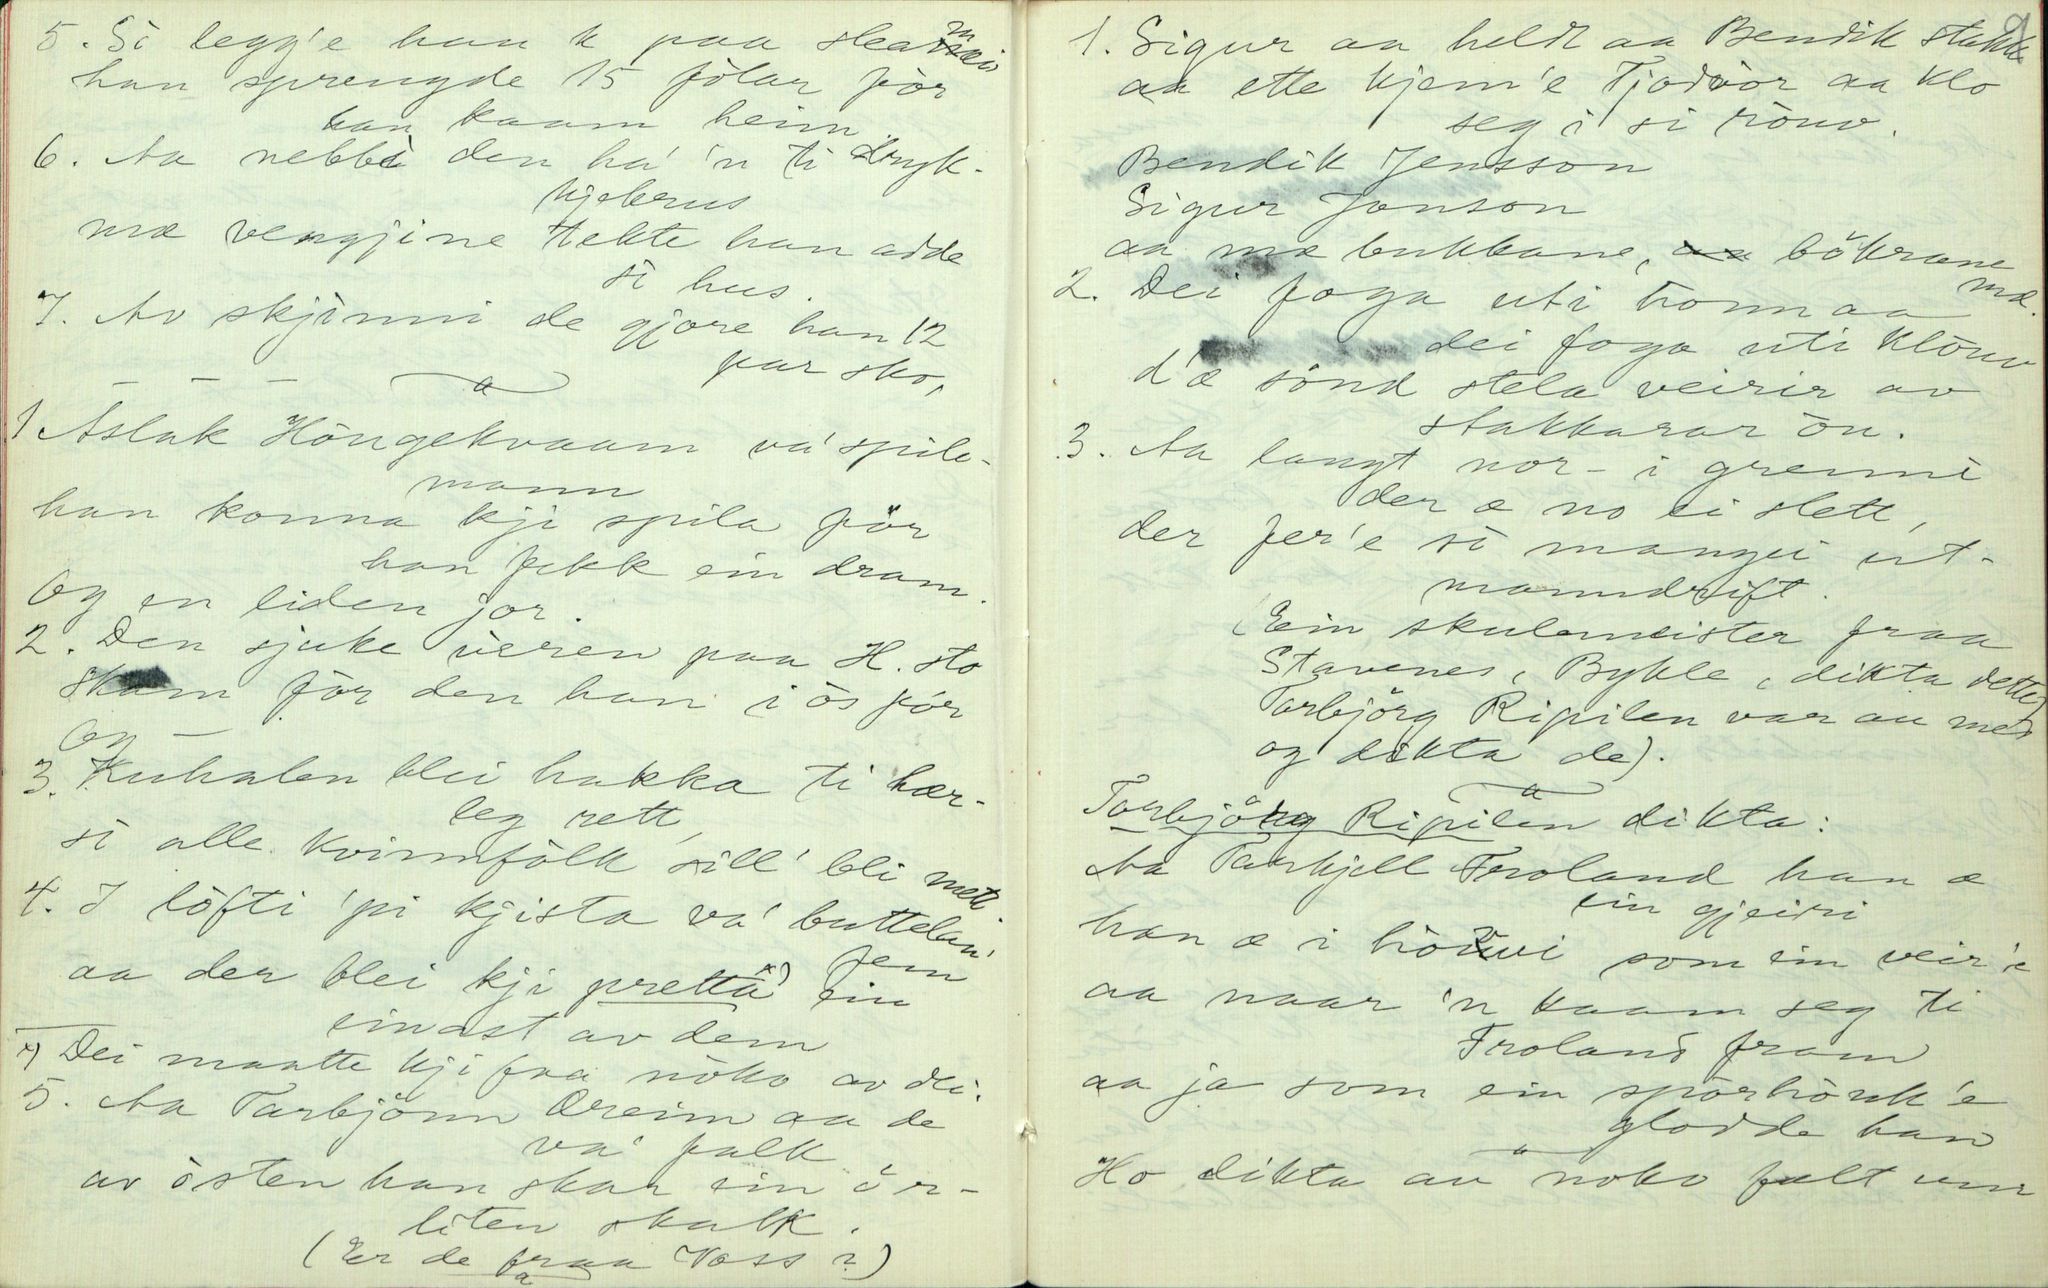 5. Si legg'e han k paa slea
han sprengde 15 fòlar fòr
han kaam heim.
6. Aa nebbi den ha' 'n ti drykkjekrus
mæ vengjine tekte han adde
si hus.
7. Av skjinni de gjore han 12
par sko,
1 Aslak Höngekvaam va' spilemann
han konna kji spila för
han fekk ein dram.
Og en liden jor.
2. Den sjuke veren paa H. sto
skam för den han i òs fòr
Og —
3. Kuhalen blei hakka ti hærleg rett,
si alle kvinnfölk sill' bli mett.
4. I löfti 'pi kjista va' buttelan' fem
aa der blei kji pretta x) ein
einast av dem
x) Dei maatte kji faa nöko av dei.
5. Aa Tarbjönn Øreim aa de
va' falk
av òsten han skar ein örliten
skalk.
(Er de fraa Voss?)
9
1. Sigur aa heldt aa Bendik stakk
aa ette kjem'e Tjodvor aa klo
seg i si röuv.
Bendik Jensson
Sigur Jonson
aa mæ bukkane, bökrane mæ.
2. Dei foga uti honnaa
dei foga uti klöuv
d'æ sönd stela veirir av
stakkarar òu.
3. Aa langt nor- i grenni
der æ no ei slett,
der fer'e si mangei utmanndrift.
(Ein skulemeister fraa
Stavenes, Bykle, dikta dette,
Tarbjörg Ripilen var au med
og dikta de).
Tarbjörg Ripilen dikta:
Aa Tarkjell Froland han æ
ein gjeiri
han æ i höuvi som ein veir'e
aa naar 'n kaam seg ti
Froland fram
aa ja som ein spörhöuk'e
glodde han
Ho dikta au noko falt um